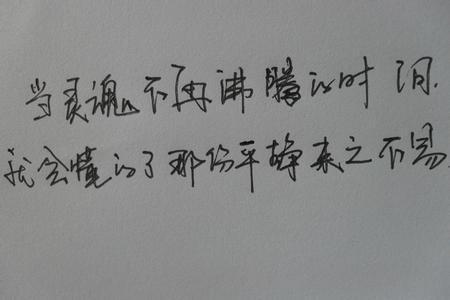 当灵魂不再沸腾的时间.
我会懂的了那份平静来之不易.